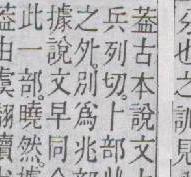 也之訓見
蓋古本說文
兵列切。上部
之外。別爲兆部
據說文早同
此一部。曉然。
由虞翻讀